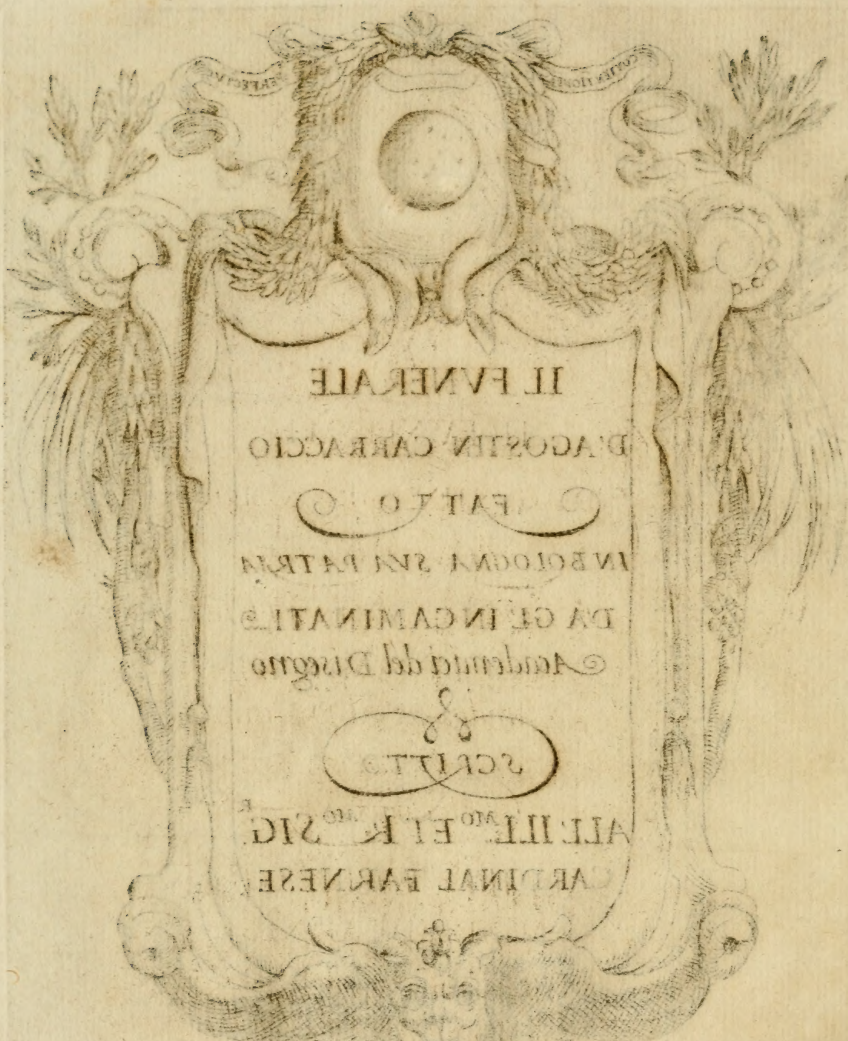 CONTENTIONE PERFECTVS
IL FVNERALE
D'AGOSTIN CARRACCIO
FATTO
IN BOLOGNA SVA PATRIA
DA GL'INCAMINATI
Academici del Disegno
SCRITTO
ALL'ILL.MO ET R.MO SIG.R
CARDINAL FARNESE